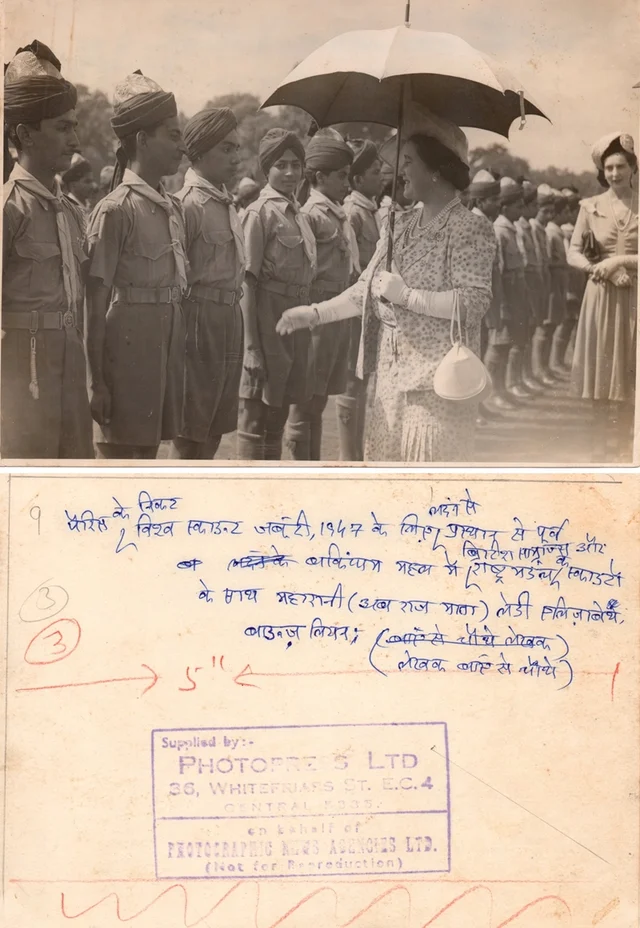 १
पेरिस के निकट
विश्व स्काउट जंबूरी, 1947 के लिए प्रस्थान से पूर्व
लंदन के
बकिंघम महल में ब्रिटिश साम्राज्य और
राष्ट्र मंडल के स्काउटों
के साथ महारानी (अब राज माता) लेडी एलिज़ाबेथ
(बाएं से चौथे लेखक)
(लेखक बाएं से चौथे)
3
3
5"
Supplied by:-
PHOTOPRESS LTD
36, WHITEFRIARS ST. E.C.4
CENTRAL
on behalf of
PHOTOGRAPHIC NEWS AGENCIES LTD.
(Not for Reproduction)